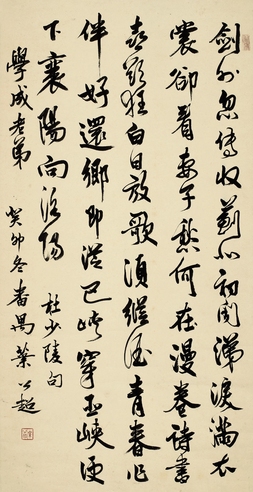 劍外忽傳收薊北初聞涕淚滿衣
裳卻看妻子愁何在漫卷詩書
喜欲狂白日放歌須縱酒青春作
伴好還鄉即從巴峽穿巫峽便
下襄陽向洛陽
杜少陵句
學成老弟
癸卯冬番禺葉公超